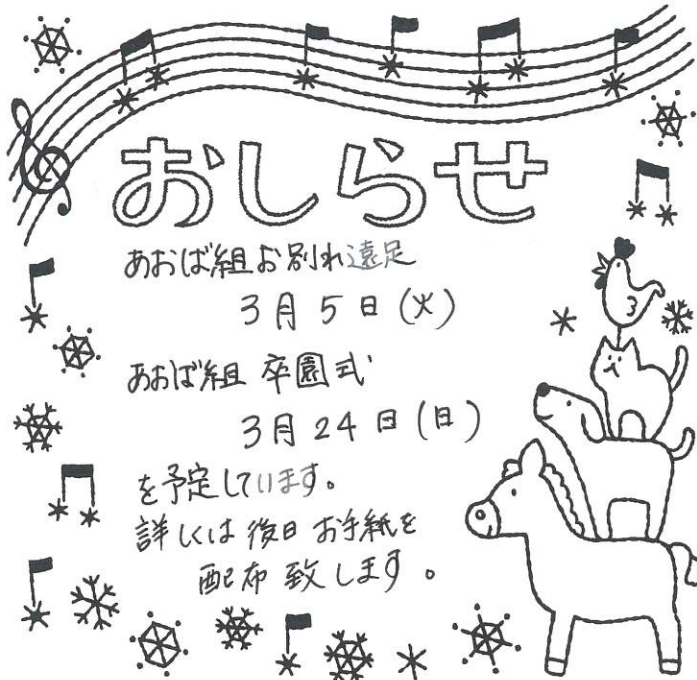 おしらせ
あおば組お別れ遠足
3月5日(火)
あおば組 卒園式
3月24日(日)
を予定しています。
詳しくは後日お手紙を
配布致します。